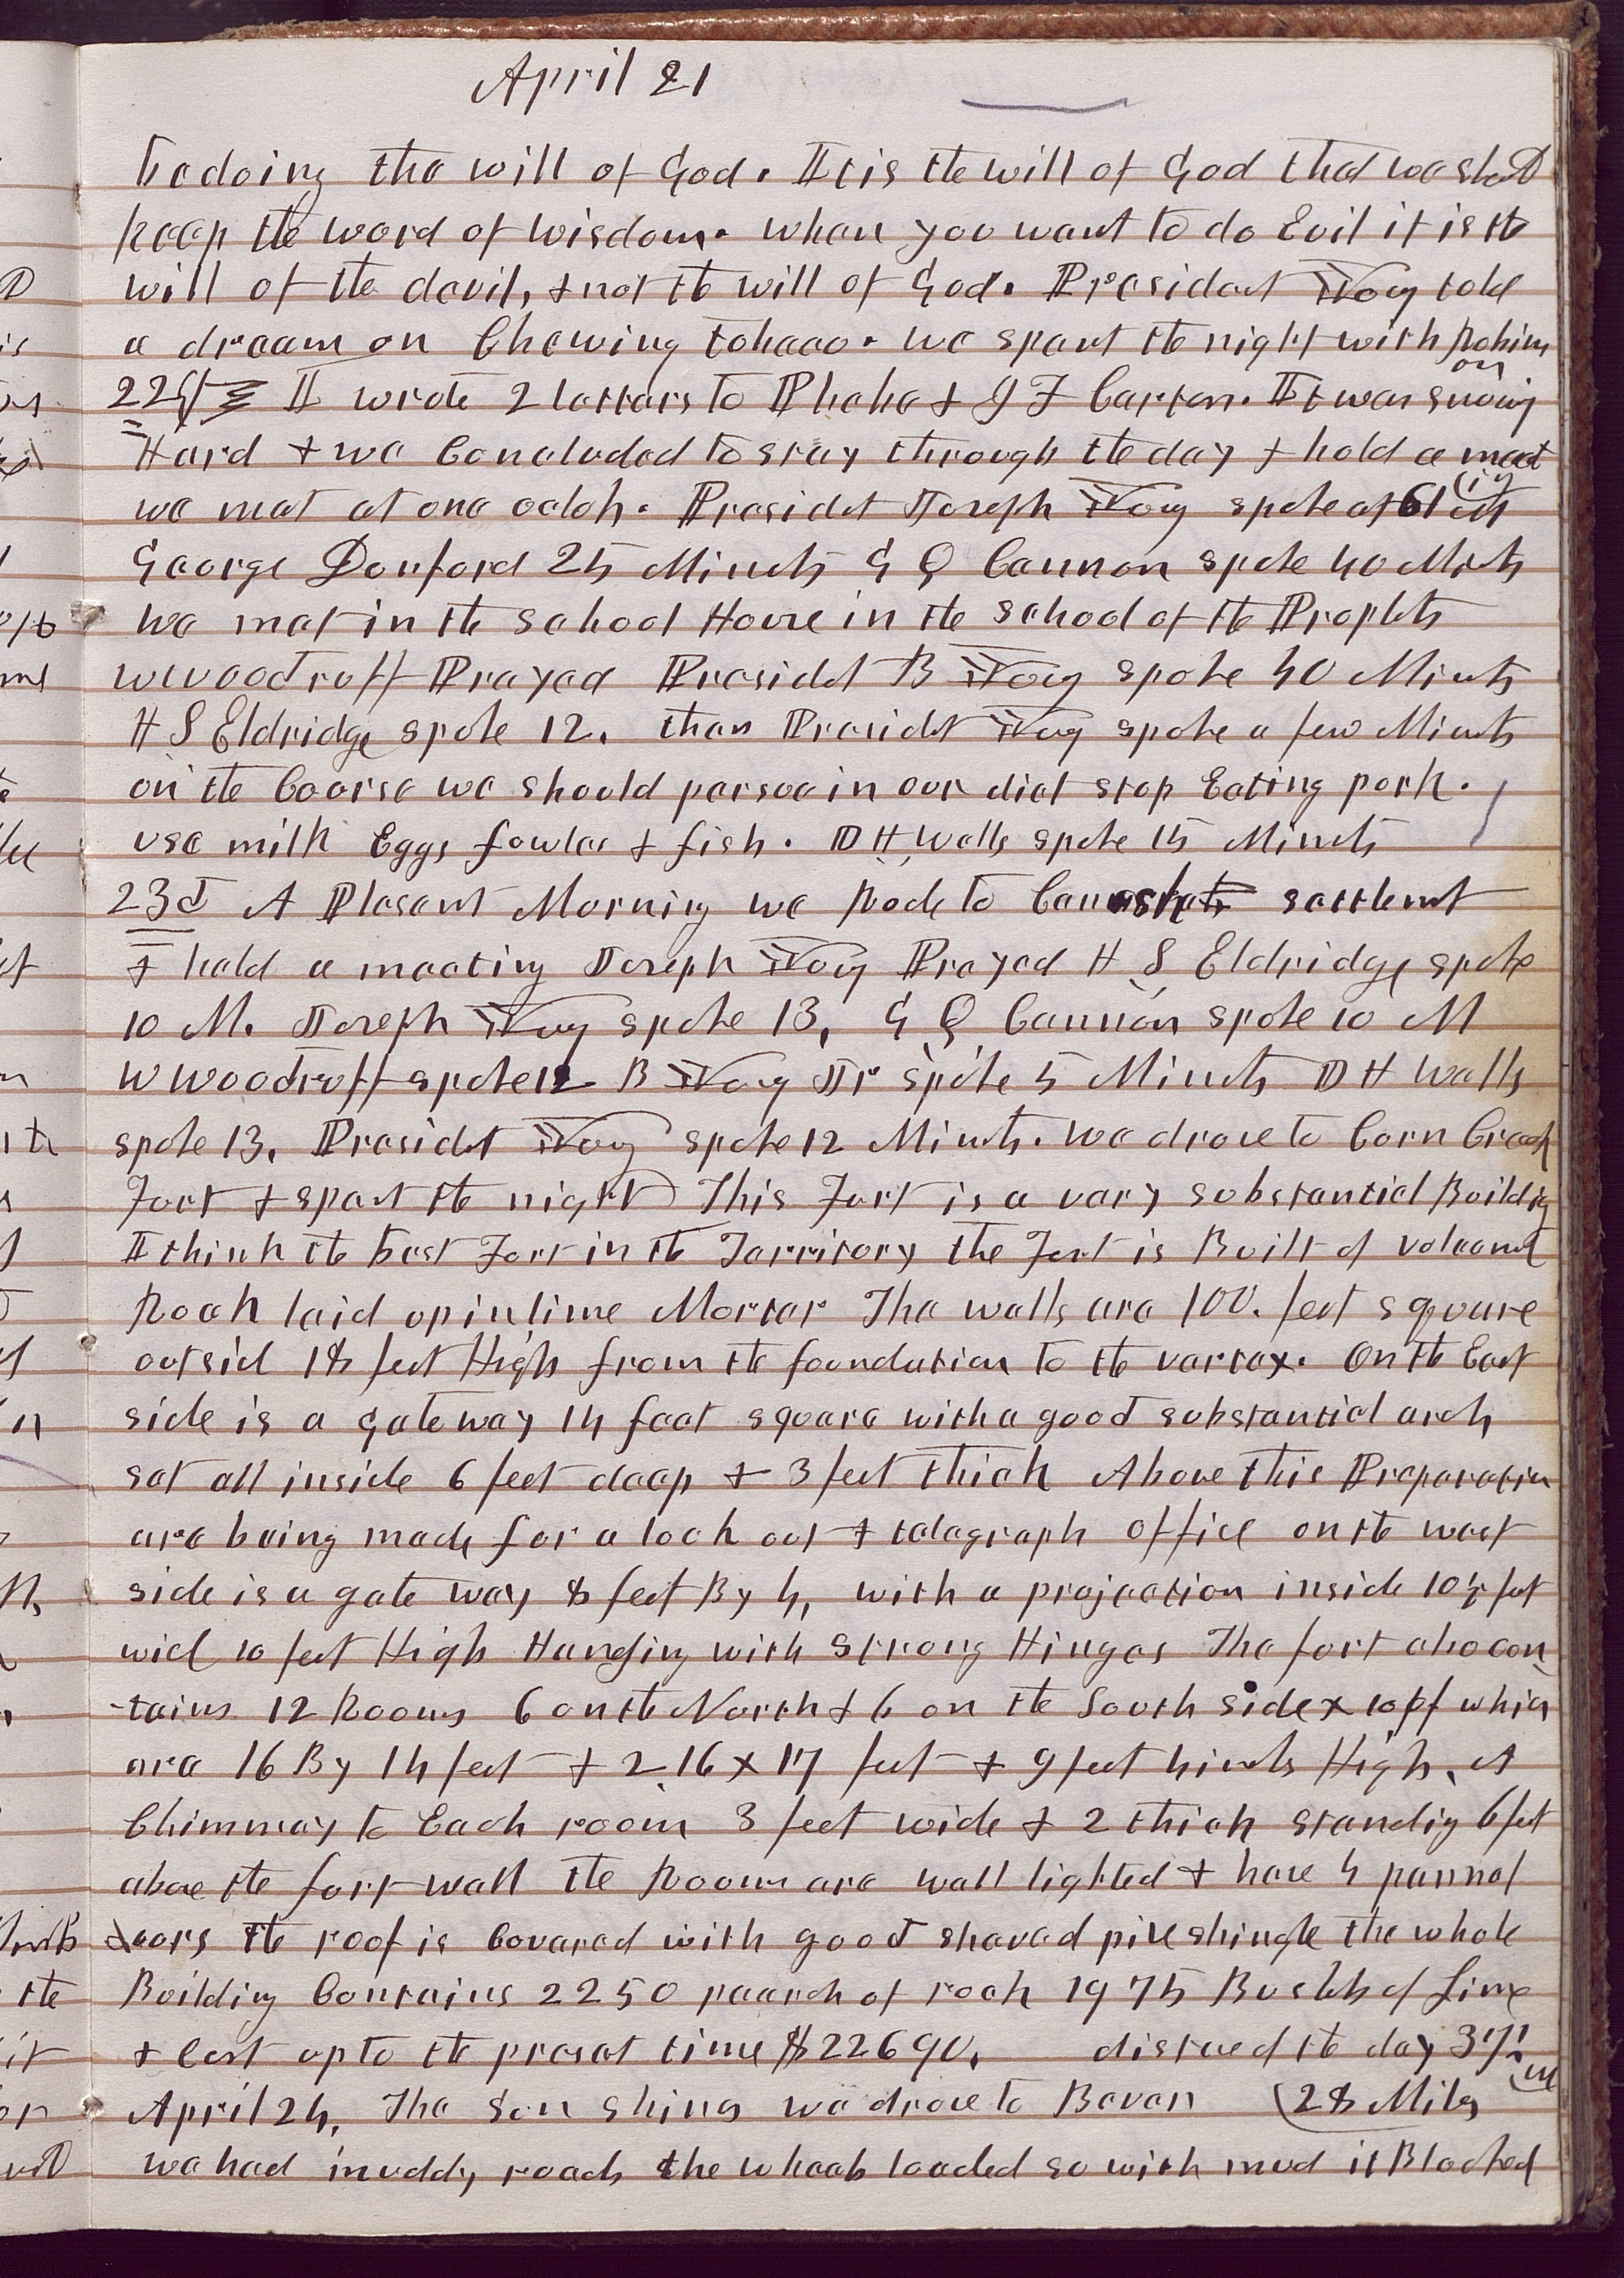 April 21
be doing the will of God. It is the will of God that we should
keep the word of wisdom. when you want to do Evil it is the
will of the devil, & not the will of God. President Young told
a dream on Chewing tobacco. we spent the night with Robins
on
22d I wrote 2 letters to Phebe & J F Carter. It was snowing
Hard & we Concluded to stay through the day & hold a meet
ing
we met at one oclok. Presidet Joseph Young spoke
George Dunford 25 Minuts G Q Cannon spoke 40 Minuts
we met in the school House in the school of the Prophets
W Woodruff Prayed Presidet B Young spoke 40 Minuts
H S Eldridge spoke 12. then Presidet Young spoke a few Minuts
on the Course we should persue in our diet stop Eating pork.
use milk Eggs fowles & fish. D H Wells spoke 15 Minuts
23d A Plesent Morning we Rode to settlemt
& held a meeting Joseph Young Prayed H S Eldridge spoke
10 M. Joseph Young spoke 13, G Q Cannon spoke 10 M
W Woodruff spoke 12 B Young Jr spoke 5 Minuts D H Wells
spoke 13, Presidet Young spoke 12 Minuts. we drove to Corn Creek
Fort & spent the night This Fort is a very substantial Buildig
I think the best Fort in the Territory the Fort is Built of volcanic
Rock laid up in lime Mortar The walls are 100. feet square
outsid 18 feet High from the foundation to the vertex. On the East
side is a gate way 14 feet square with a good substantial arch
set all inside 6 feet deep & 3 feet thick Above this Preparation
are being made for a look out & telegraph office on the west
side is a gate way 8 feet By 4, with a projection inside 10½ feet
wid 10 feet High Hanging with strong Hinges The fort also con
-tains 12 Rooms 6 on the North & 6 on the South side 10 of which
are 16 By 14 feet & 2 16 x 17 feet & 9 feet 4 inch High, A
Chimney to Each room 3 feet wide & 2 thick standig 6 feet
above the fort wall the Rooms are well lighted & have 4 pannel
doors the roof is Covered with good shaved pine shingle the whole
Building Contains 2250 pearch of rock 1975 Bushels of Lime
& Cost up to the preset time $22690. distance the day 37 m
April 24, The Sun shines we drove to Bevar 28 Miles
we had muddy roads the wheels loaded so with mud it Blocked